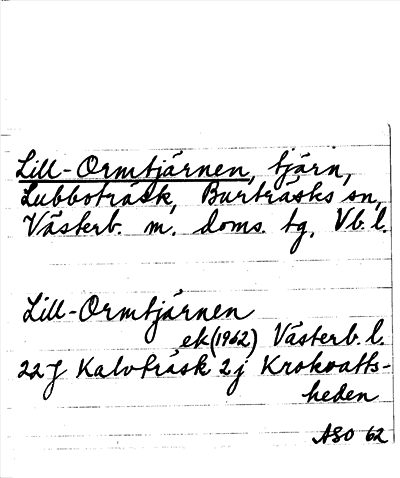 Lill-Ormtjärnen, tjärn,
Lubboträsk, Burträsks sn,
Västerb. m. doms. tg, Vb. l.
Lill-Ormtjärnen
ek (1962) Västerb. l.
22 J Kalvträsk 2j Krokvatts-
heden
ASO 62